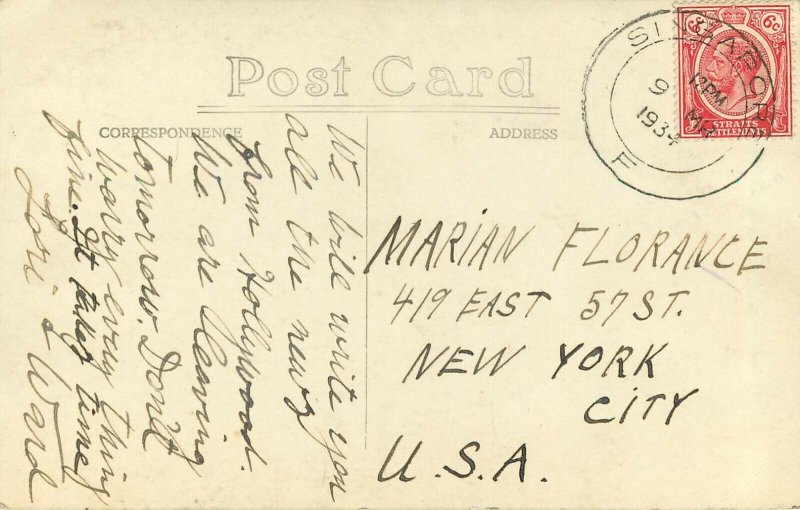 Post Card
CORRESPONDENCE
ADDRESS
We will write you
all the newz
from Hollywood.
We are leaving
tomorrow. Don't
warry every thing
fine. It takes time
Lori & Ward
MARIAN FLORANCE
419 EAST 57 ST.
NEW YORK
CITY
U.S.A.
SINGAPORE
12PM
9 MR
1934
F
6c 6c
STRAITS
SETTLEMENTS